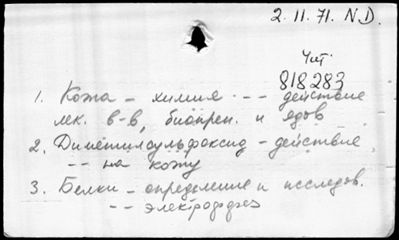 2.11.71. N.D.
Чит
818283
1. Кожа – химия -- действие
лек. в-в, биопреп. и ядов
2. Диметилсульфоксид – действие
-- на кожу
3. Белки – определение и исследов.
-- электрофорез